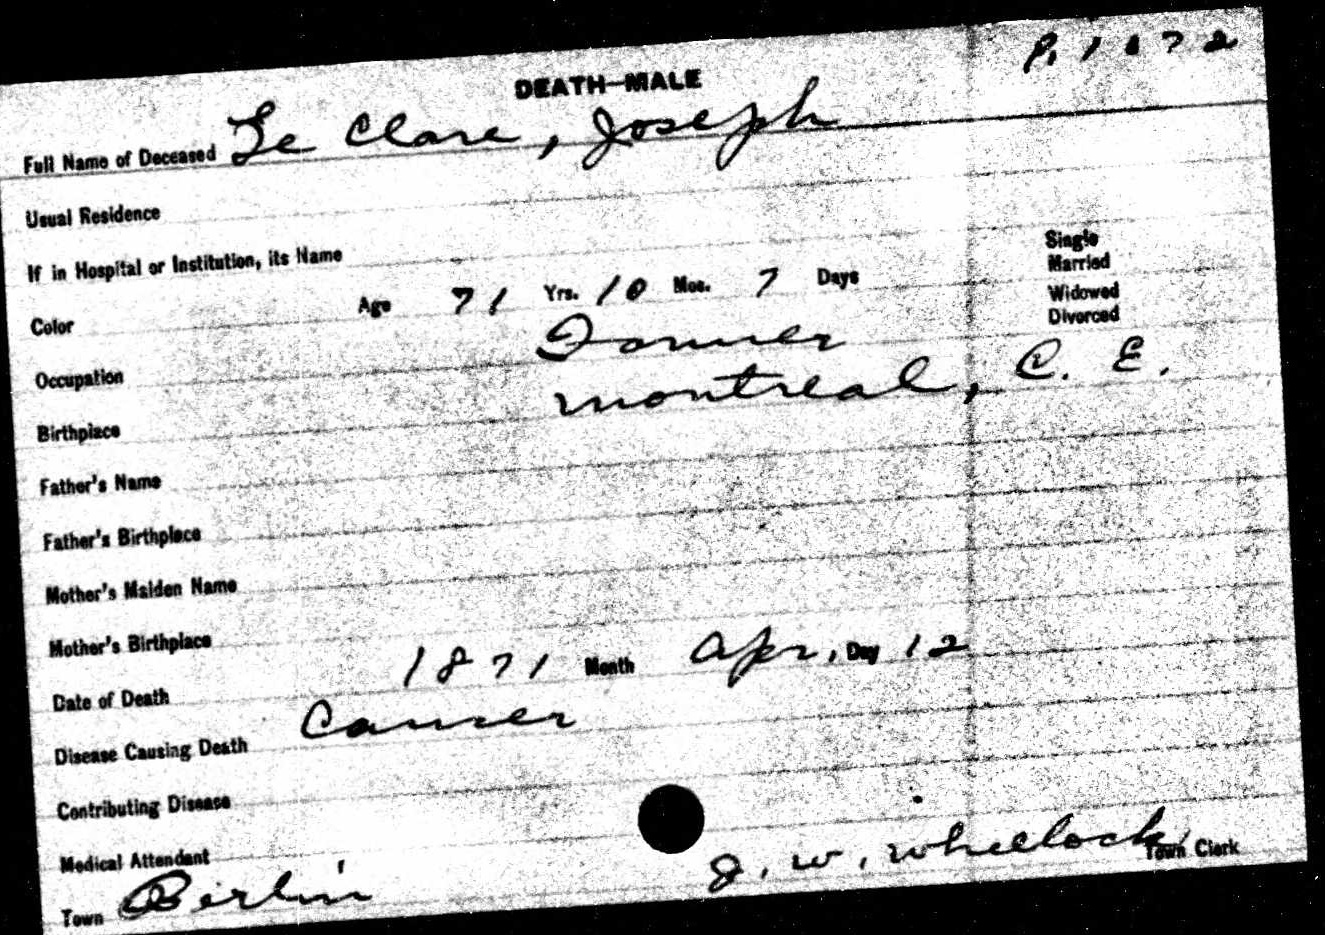 P. 1072
DEATH—MALE
Full Name of Deceased Le Clare, Joseph
Usual Residence
If in Hospital or Institution, its Name
Single
Married
Color Age 71 Yrs. 10 Mos. 7 Days
Widowed
Divorced
Occupation Farmer
Birthplace Montreal, C. E.
Father's Name
Father's Birthplace
Mother's Maiden Name
Mother's Birthplace
Date of Death 1871 Month Apr, Day 12
Disease Causing Death Cancer
Contributing Disease
Medical Attendant
Town Berlin J. W. Wheelock Town Clerk